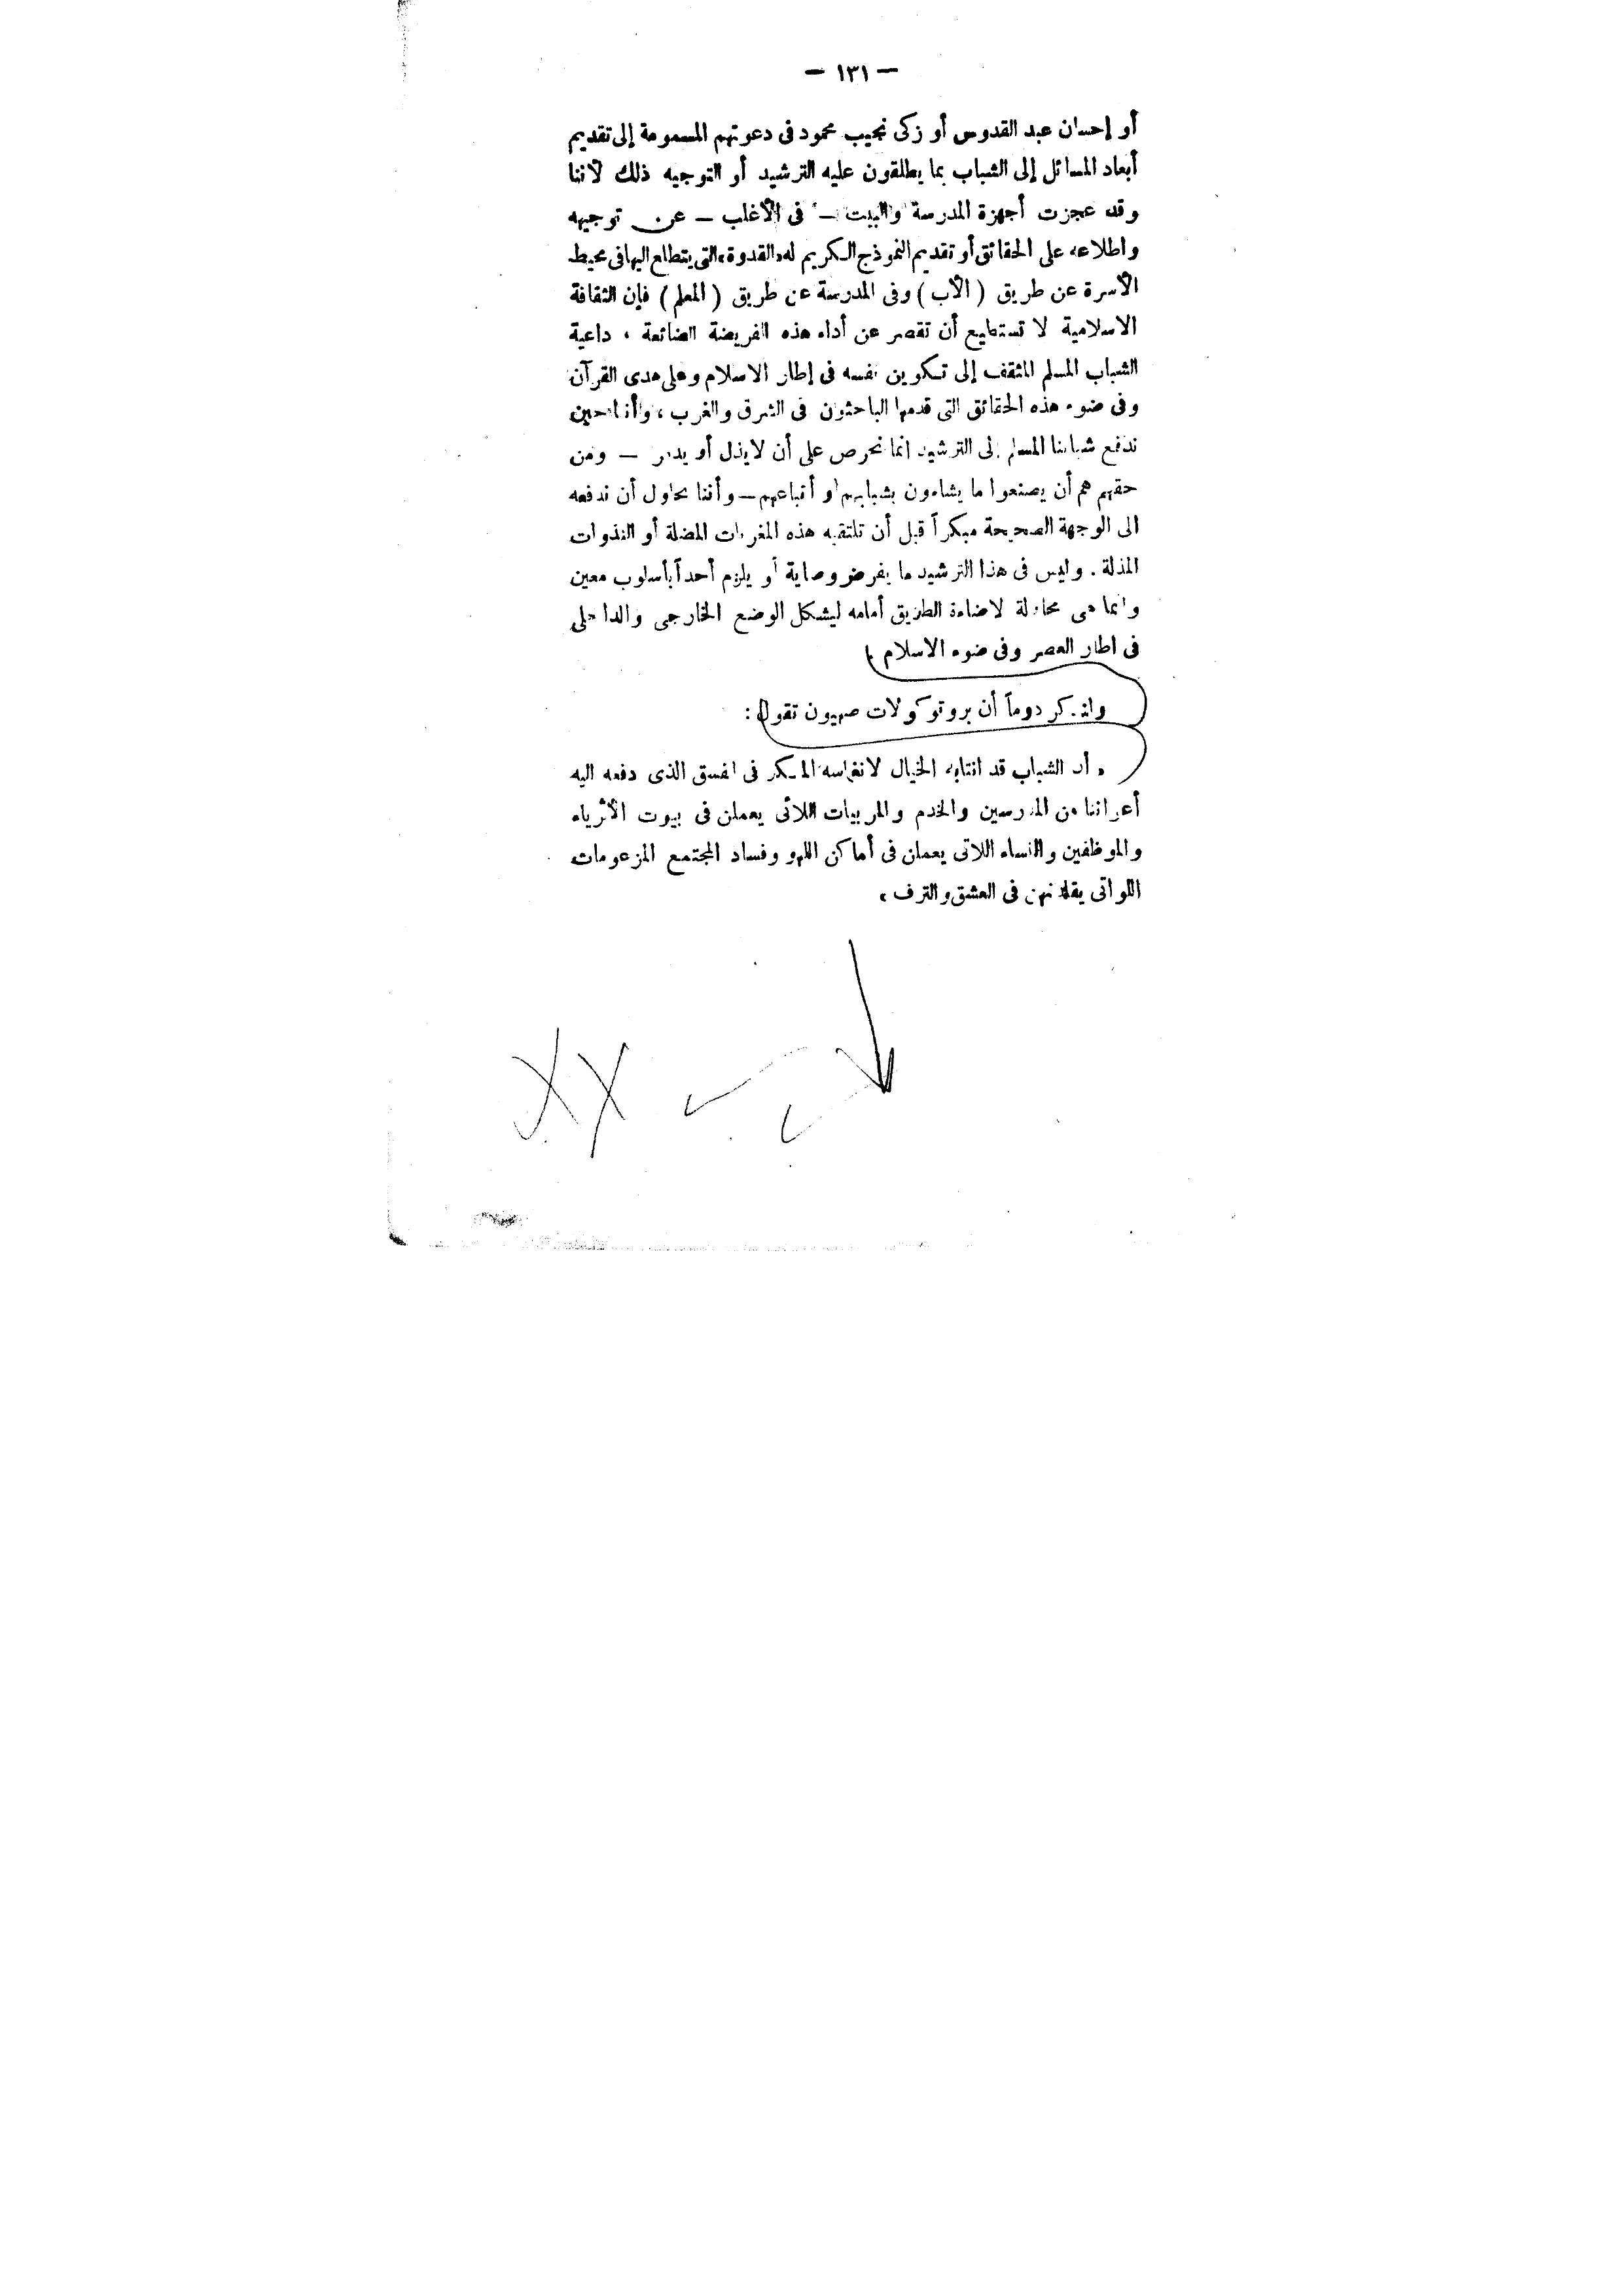 — ١٣١ —
أو إحسان عبد القدوس أو زكى نجيب محمود فى دعوتهم المسمومة إلى تقديم
أبعاد المسائل إلى الشباب بما يطلقون عليه الترشيد أو التوجيه ذلك لأننا
وقد عجزت أجهزة المدرسة والبيت — فى الأغلب — عن توجيهه
واطلاعه على الحقائق أو تقديم النموذج الكريم له «القدوة» التى يتطلع اليها فى محيط
الأسرة عن طريق ( الأب ) وفى المدرسة عن طريق ( المعلم ) فإن الثقافة
الاسلامية لا تستطيع أن تقصر عن أداء هذه الفريضة الضائعة ، داعية
الشباب المسلم المثقف إلى تكوين نفسه فى إطار الاسلام وعلى هدى القرآن
وفى ضوء هذه الحقائق التى قدمها الباحثون فى الشرق والغرب ، وأننا حين
ندفع شبابنا المسلم إلى الترشيد انما نحرص على أن لا يذل أو — ومن
حقهم هم أن يصنعوا ما يشاءون بشبابهم أو أتباعهم — وأننا نحاول أن ندفعه
الى الوجهة الصحيحة مبكراً قبل أن تلتقيه هذه المغريات المضلة أو النذوات
المذلة . وليس فى هذا الترشيد ما يفرض وصاية أو يلزم أحداً بأسلوب معين
وانما هى محاولة لاضاءة الطريق أمامه ليشكل الوضع الخارجى والداخلى
فى اطار العصر وفى ضوء الاسلام .
ولنذكر دوماً أن بروتوكولات صهيون تقول :
« أن الشباب قد انتابه الخبال لانغماسه المبكر فى الفسق الذى دفعه اليه
أعواننا من المدرسين والخدم والمربيات اللائى يعملن فى بيوت الأثرياء
والموظفين والنساء اللاتى يعملن فى أماكن اللهو وفساد المجتمع المزعومات
اللواتى يقلدنهن فى العشق والترف »